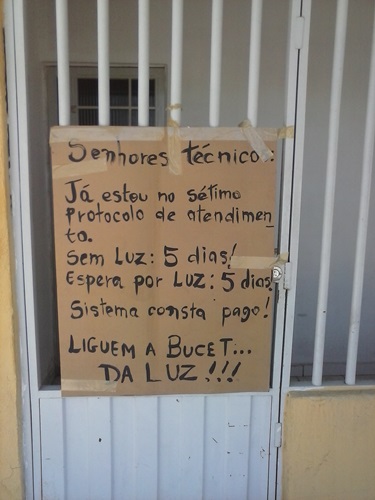 Senhores técnicos:
Já estou no sétimo
Protocolo de atendimen
to.
Sem Luz: 5 dias!
Espera por Luz: 5 dias.
Sistema consta pago!
LIGUEM A BUCET...
DA LUZ!!!